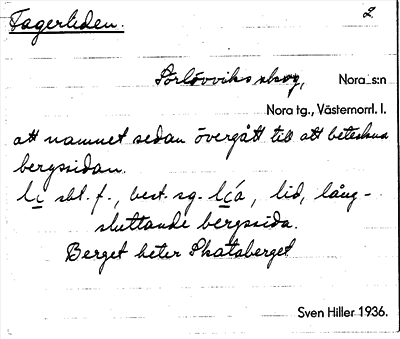 Fagerliden. 2.
Sörlövviks skog, Nora s:n
Nora tg., Västernorrl. l.
att namnet sedan övergått till att beteckna
bergssidan.
li sbt. f., best. sg. lía, lid, lång-
sluttande bergssida.
Berget heter Skataberget
Sven Hiller 1936.